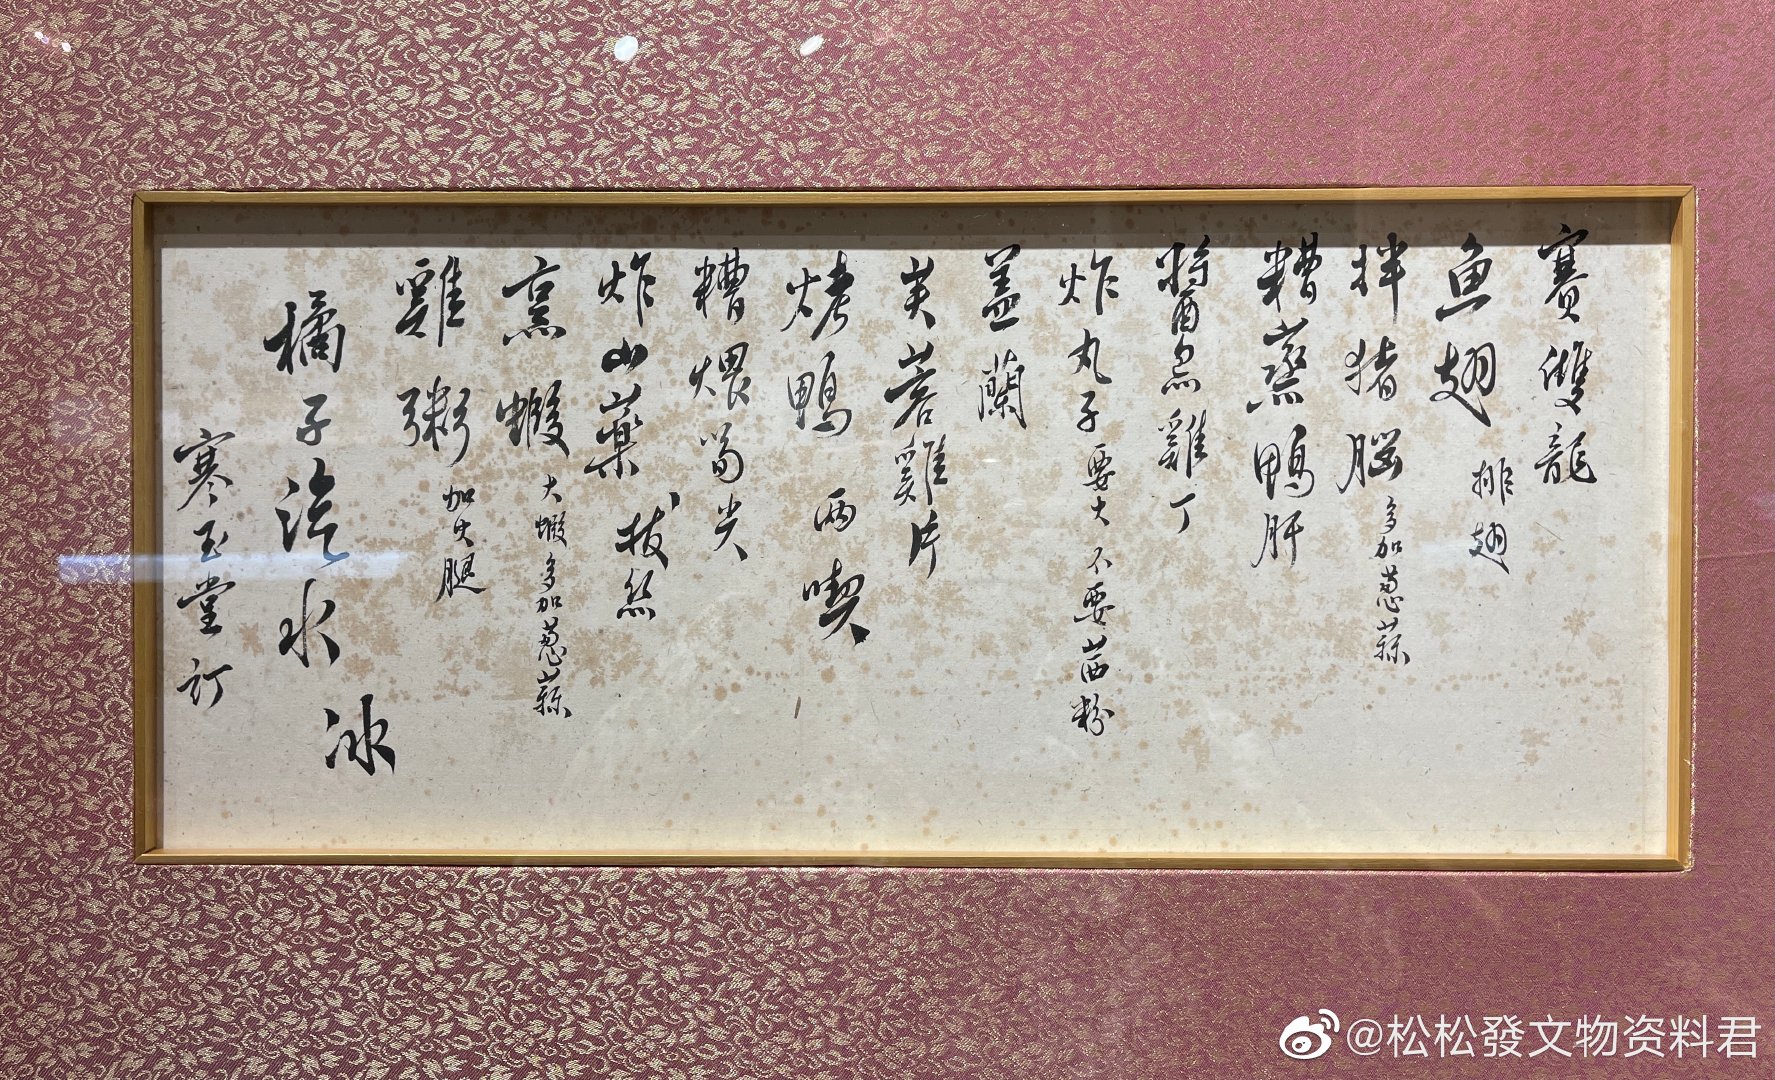 賽雙龍
魚翅 排翅
拌猪腦 多加葱蒜
糟蒸鴨肝
醬烏雞丁
炸丸子 要大不要茜粉
蓋蘭
芙蓉雞片
烤鴨 兩喫
糟煨笋尖
炸山藥 拔絲
烹蝦 大蝦多加葱蒜
雞粥 加火腿
橘子汽水 冰
寒玉堂訂
@松松發文物资料君